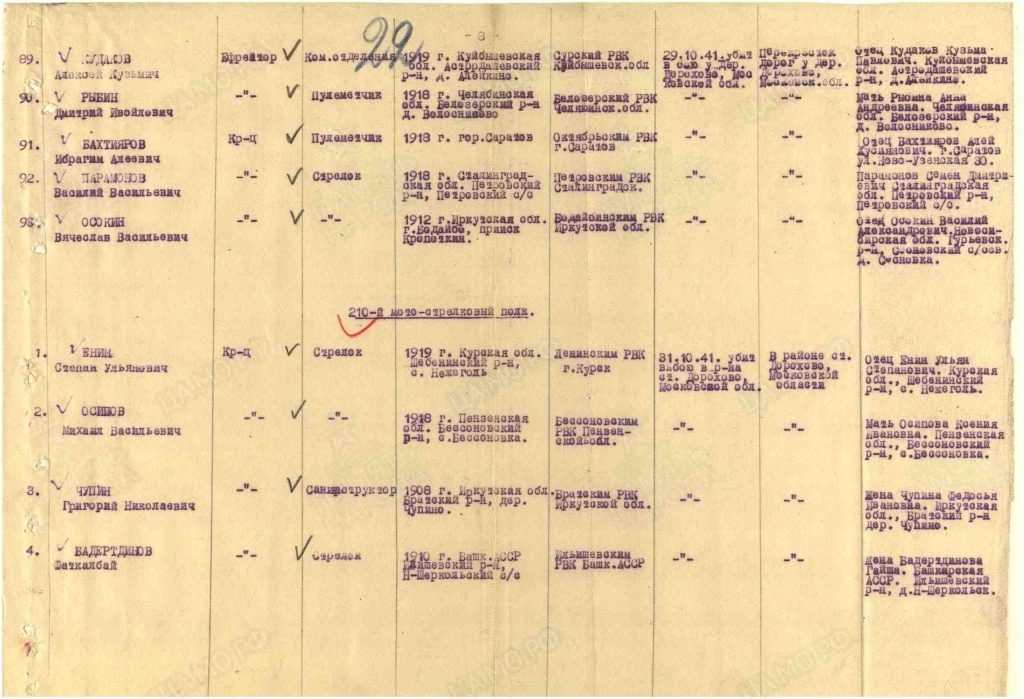 - 8 -
22
89. КУДАКОВ
Алексей Кузьмич
Ефрейтор
Ком.отделения
1919 г. Куйбышевская
обл. Астродашевский
р-н, д. Алейкино.
Сурский РВК
Куйбышевск.обл
29.10.41.убит
в бою у дер.
Дорохово, Мос
ковской обл.
Перекресток
Дорог у дер.
Дорохово,
Московск.обл.
Отец Кудаков Кузьма
Павлович. Куйбышевская
обл. Астродашевский
р-н, д.Алейкино.
90. РЫБИН
Дмитрий Ивойлович
-"-
Пулеметчик
1918 г. Челябинская
обл. Белозерский р-н
д. Волосниково
Белозерский РВК
Челябинск.обл.
-"-
-"-
Мать Рыбина Анна
Андреевна. Челябинская
обл. Белозерский р-н,
д. Волосниково.
91. БАХТИЯРОВ
Ибрагим Алеевич
Кр-ц
Пулеметчик
1918 г. гор.Саратов
Октябрьским РВК
г.Саратов
-"-
-"-
Отец Бахтияров Алей
Хусиянович. г.Саратов
ул.Ново-Узенская 30.
92. ПАРАМОНОВ
Василий Васильевич
-"-
Стрелок
1918 г. Сталинград-
ская обл. Петровский
р-н, Петровский с/с
Петровским РВК
Сталинградск.
-"-
-"-
Парамонов Семен Дмитри-
евич Сталинградская
обл. Петровский р-н,
Петровский с/с.
93. ОСОКИН
Вячеслав Васильевич
-"-
-"-
1912 г.Иркутская обл.
г.Бодайбо, прииск
Кропоткин.
Бодайбинским РВК
Иркутской обл.
-"-
-"-
Отец Осокин Василий
Александрович.Новоси-
бирская обл. Гурьевск.
р-н, Сосновский с/сов.
д. Сосновка.
210-й мото-стрелковый полк.
1. ЕНИН
Степан Ульянович
Кр-ц
Стрелок
1919 г. Курская обл.
Шебенинский р-н,
с. Нежеголь
Ленинским РВК
г.Курск
31.10.41. убит
вбою в р-на
ст. Дорохово,
Московской обл.
В районе ст.
Дорохово,
Московской
области
Отец Енин Ульян
Степанович. Курская
обл., Шебенинский
р-н, с. Нежеголь.
2. ОСИПОВ
Михаил Васильевич
-"-
-"-
1918 г. Пензенская
обл. Бессоновский
р-н, с.Бессоновка.
Бессоновским
РВК Пензен-
ской обл.
-"-
-"-
Мать Осипова Ксения
Ивановна. Пензенская
обл., Бессоновский
р-н, с.Бессоновка.
3. ЧУПИН
Григорий Николаевич
-"-
Санинструктор
1908 г. Иркутская обл.
Братский р-н, дер.
Чупино.
Братским РВК
Иркутской обл.
-"-
-"-
Жена Чупина Федосья
Ивановна. Иркутская
обл., Братский р-н
дер. Чупино.
4. БАДЕРТДИНОВ
Фаткалбай
-"-
Стрелок
1910 г. Башк.АССР
Илишевский р-н,
Н-Шеркольский с/с
Ильишевским
РВК Башк.АССР
-"-
-"-
Жена Бадертдинова
Гайша. Башкирская
АССР. Ильишевский
р-н, д.Н-Шеркольск.
ЦАМО РФ